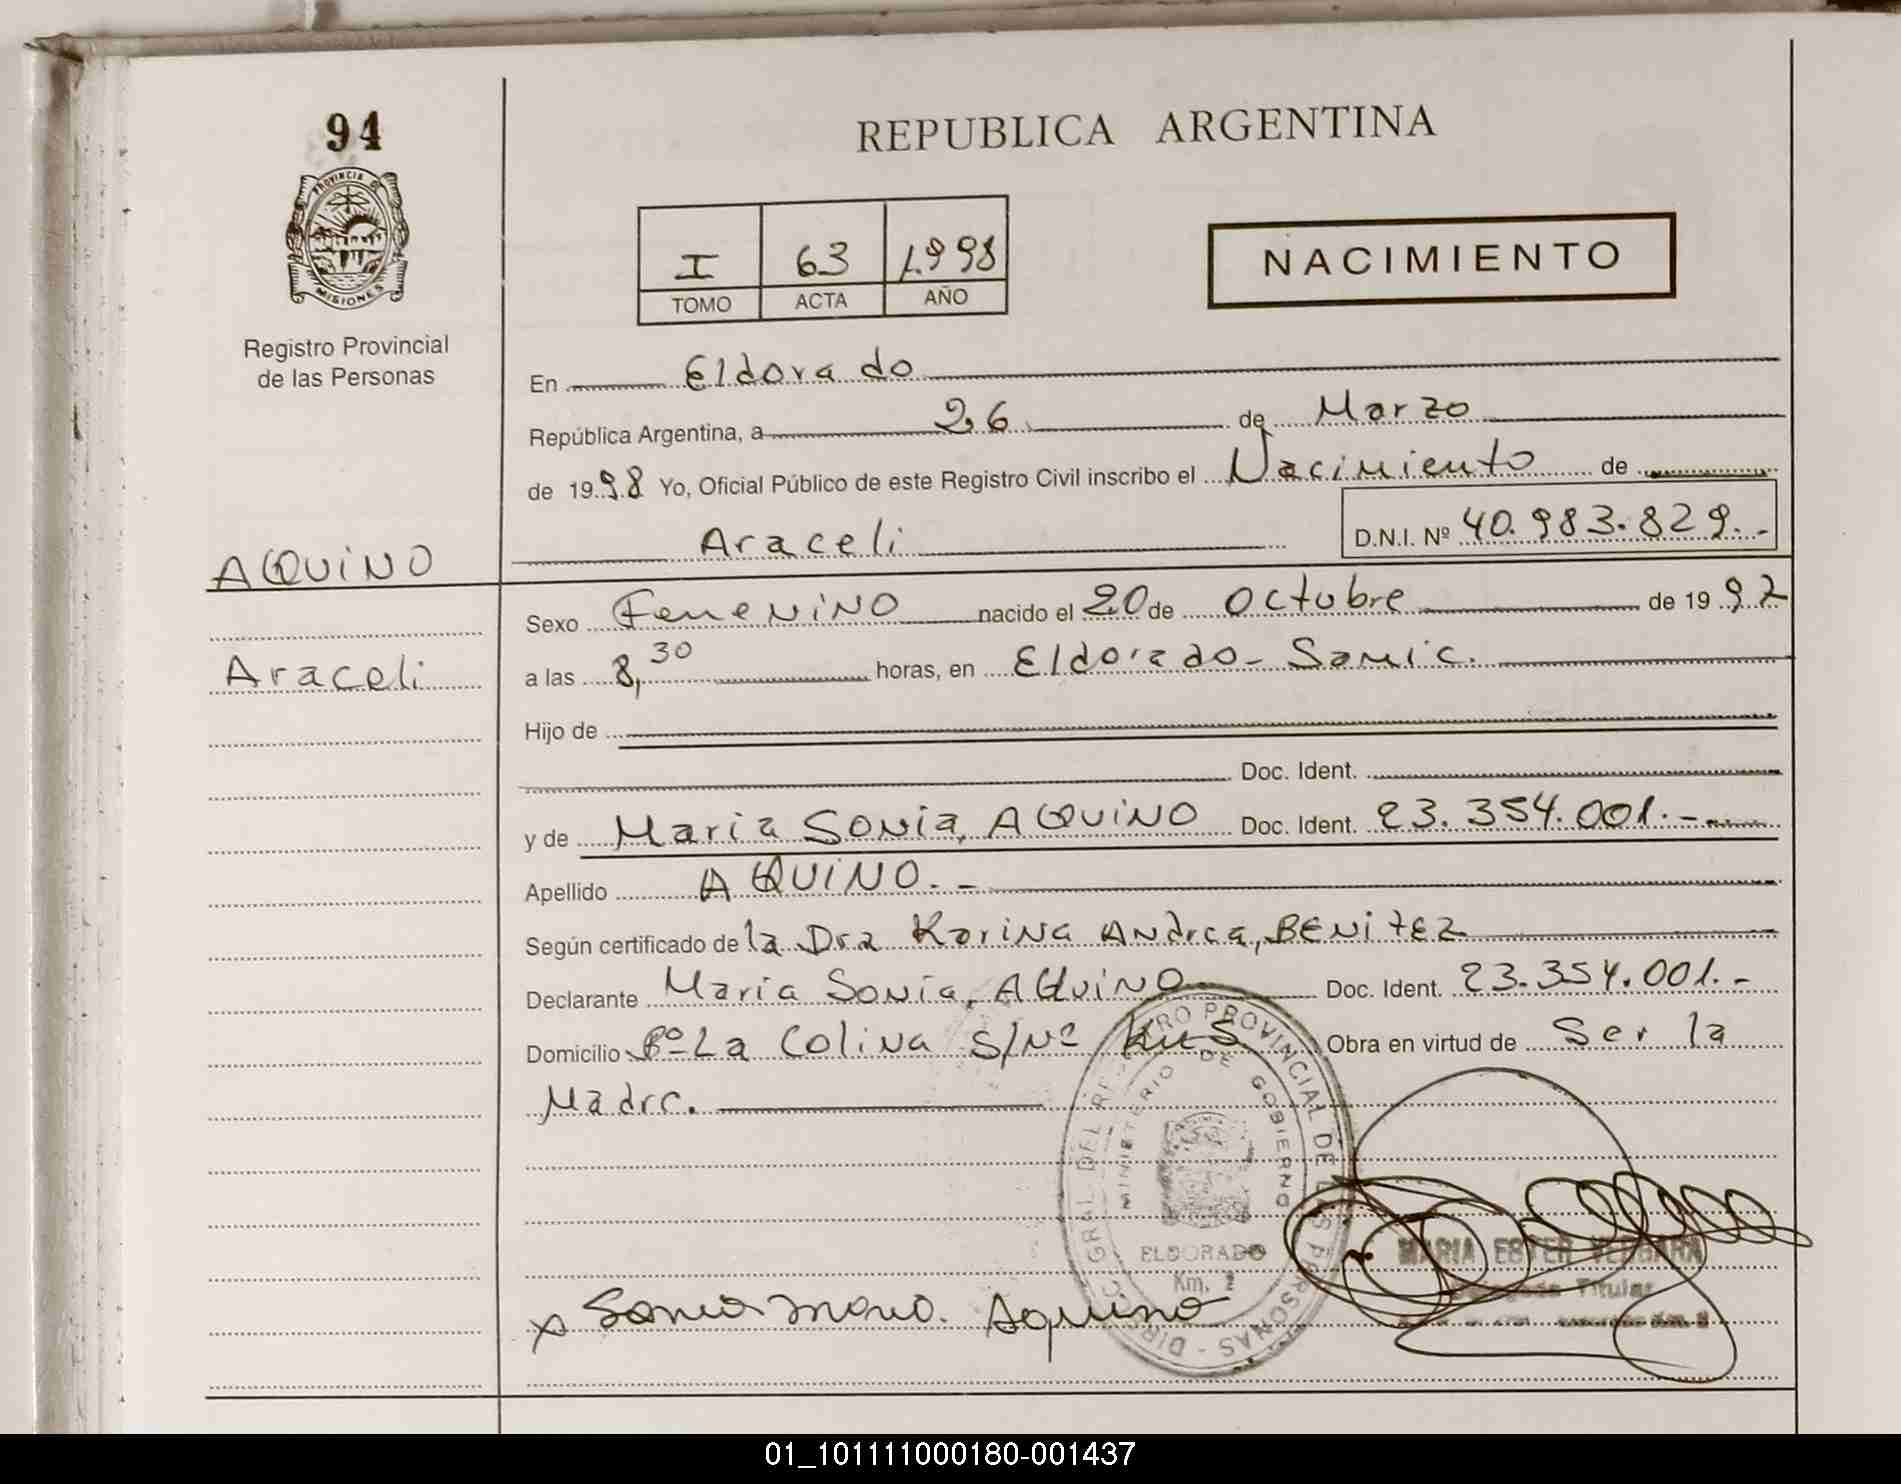 94
REPUBLICA ARGENTINA
PROVINCIA DE
MISIONES
I 63 1.998
TOMO ACTA AÑO
NACIMIENTO
Registro Provincial
de las Personas
En Eldorado
República Argentina, a 26 de Marzo
de 1998 Yo, Oficial Público de este Registro Civil inscribo el Nacimiento de
Araceli D.N.I. Nº 40.983.829.-
AQUINO
Sexo Femenino nacido el 20 de Octubre de 1997
Araceli
a las 8,30 horas, en Eldorado- Samic.
Hijo de
Doc. Ident.
y de Maria Sonia, AQUINO Doc. Ident. 23.354.001.-
Apellido AQUINO.-
Según certificado de la Dra Karina Andrea, BENITEZ
Declarante Maria Sonia, AQUINO Doc. Ident. 23.354.001.-
Domicilio Bº La Colina S/Nº Obra en virtud de Ser la
Madre.
DIREC. GRAL DEL REGISTRO PROVINCIAL DE LAS PERSONAS
MINISTERIO DE GOBIERNO
ELDORADO
Km. 2
MARIA ESTER VERGARA
Delegada Titular
x Sonia Maria. Aquino
01_101111000180-001437